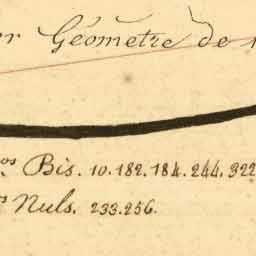 er Géometre de
os. Bis. 10.182.184.244.322
os Nuls. 233.256.